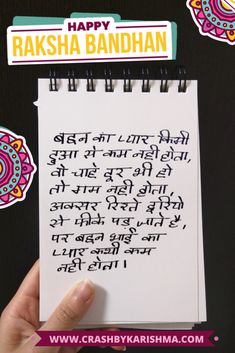 HAPPY
RAKSHA BANDHAN
बहन का प्यार किसी
दुआ से कम नही होता,
वो चाहे दूर भी हो
तो गम नही होता,
अक्सर रिश्ते दूरियो
से फीके पड़ जाते है,
पर बहन भाई का
प्यार कभी कम
नही होता।
WWW.CRASHBYKARISHMA.COM